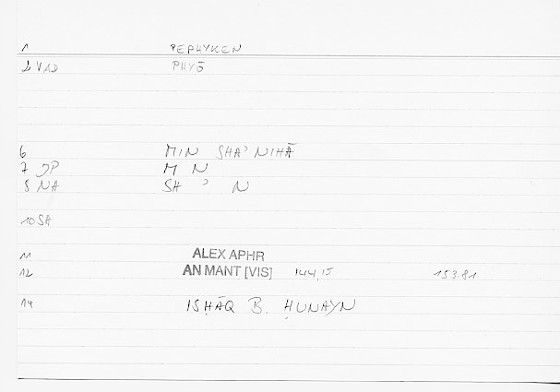 1 PEPHYKEN
2 VAD PHYŌ
6 MIN SHA'NIHĀ
7 JP M N
8 NA SH ' N
10 SA
11 ALEX APHR
12 AN MANT [VIS] 144,15 153.81
14 ISḤĀQ B. ḤUNAYN